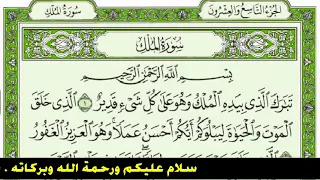 الجزء التاسع والعشرون
سورة الملك
سُورَةُ المُلْكِ
بِسْمِ اللَّهِ الرَّحْمَٰنِ الرَّحِيمِ
تَبَارَكَ الَّذِي بِيَدِهِ الْمُلْكُ وَهُوَ عَلَىٰ كُلِّ شَيْءٍ قَدِيرٌ ١ الَّذِي خَلَقَ
الْمَوْتَ وَالْحَيَاةَ لِيَبْلُوَكُمْ أَيُّكُمْ أَحْسَنُ عَمَلًا وَهُوَ الْعَزِيزُ الْغَفُورُ
سلام عليكم ورحمة الله وبركاته .